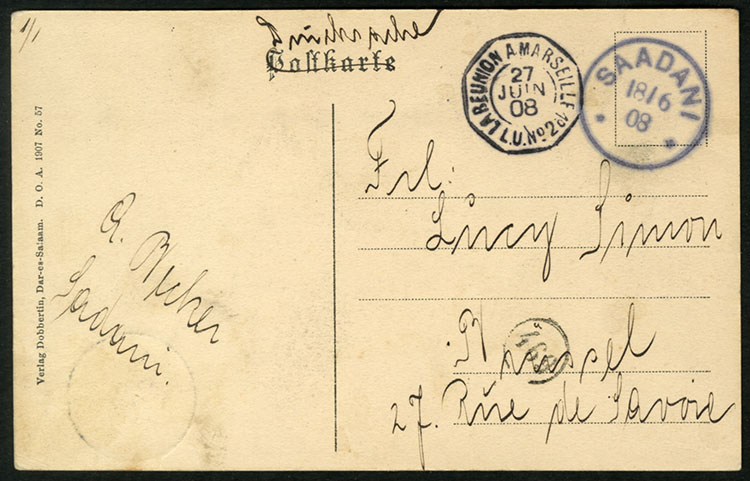 1/1
Drucksache
Postkarte
LA REUNION A MARSEILLE
27
JUIN
08
L.U. No 2
SAADANI
18/6
08
Frl.
Lucy Simon
Brussel
27. Rue de Savoie
A. Becker
Sadani.
Verlag Dobbertin, Dar-es-Salaam. D. O. A. 1907 No. 57